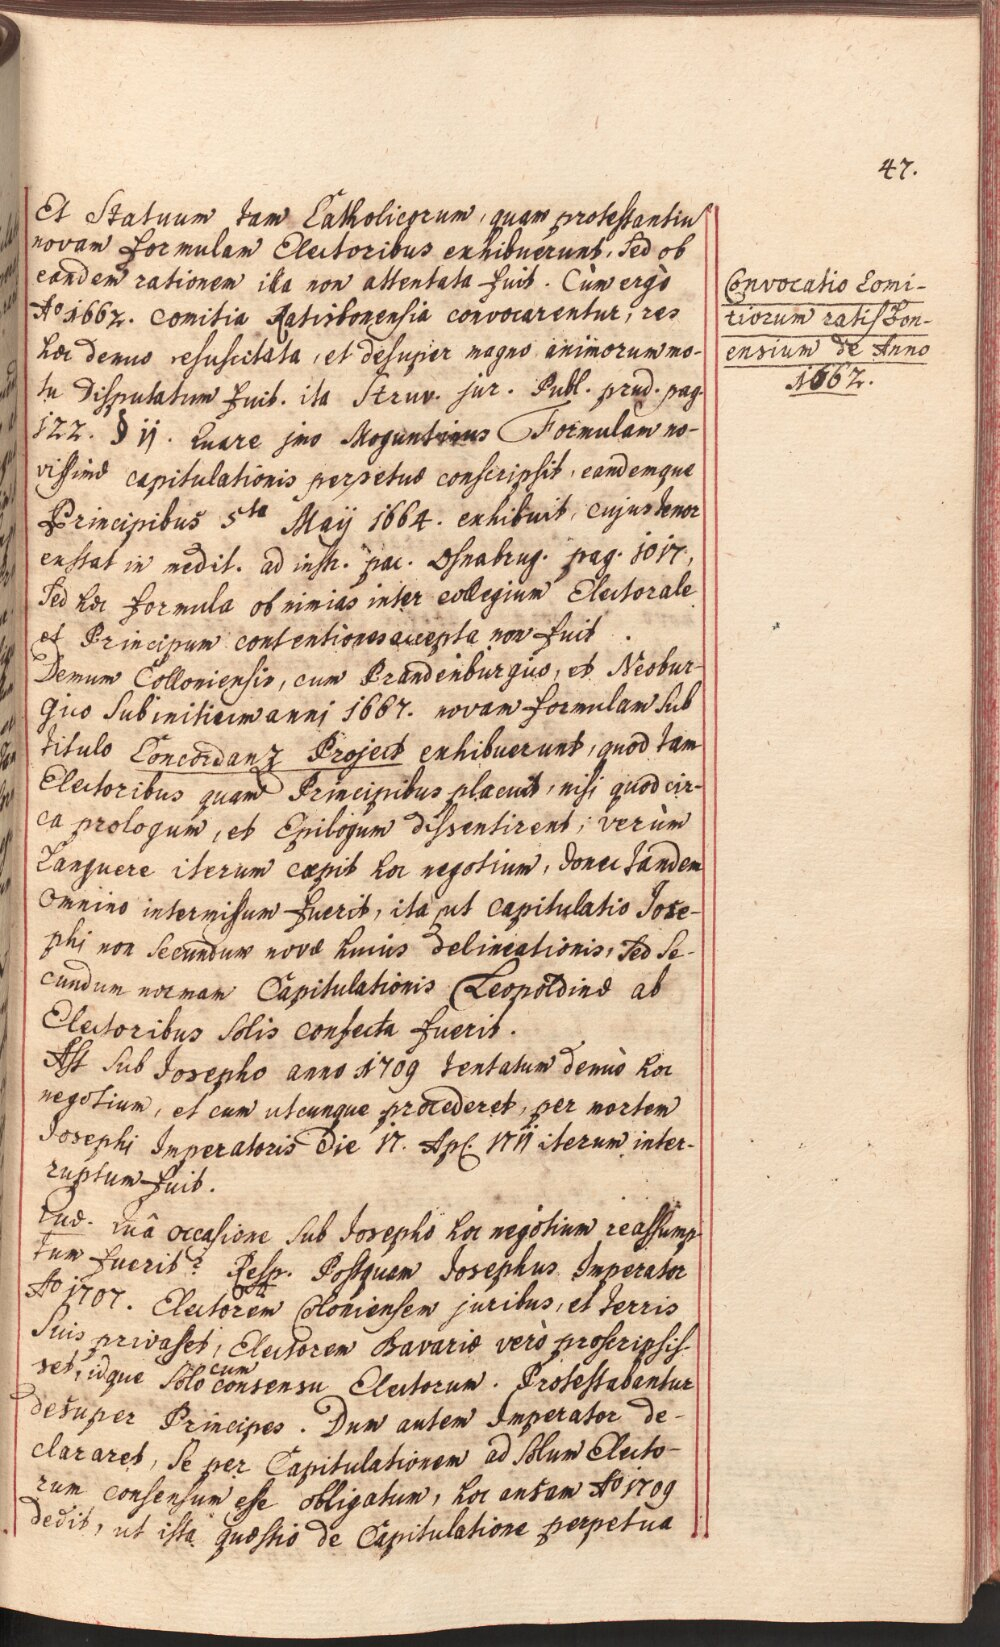 47.
Et Statuum tam Catholicorum, quam protestantiu
novam formulam Electoribus exhibuerunt, sed ob
eandem rationem illa non attentata fuit. Cùm ergò
Ao 1662. comitia Ratisbonensia convocarentur, res
hæc denuo resuscitata, et desuper magno animorum mo-
tu disputatum fuit. ita Struv. jur. Publ. prud. pag.
122. § ii. Quare jmo Moguntinus Formulam no-
vissimæ capitulationis perpetuæ conscripsit, eandemque
Principibus 5ta Maÿ 1664. exhibuit, cujus tenor
exstat in medit. ad instr. pac. Osnabrug. pag. 1017,
Sed hæc formula ob nimias inter collegium Electorale
et Principum contentiones accepta non fuit.
Demum Colloniensis, cum Brandenburgico, et Neobur-
gico sub initium anni 1667. novam formulam sub
titulo Concordanz Project exhibuerunt, quod tam
Electoribus quam Principibus placuit, nisi quod cir-
ca prologum, et Epilogum dissentirent; verùm
Languere iterum cæpit hoc negotium, donec tandem
omnino intermissum fuerit, ita ut capitulatio Jose-
phi non secundum novæ huius delineationis, sed se-
cundum normam Capitulationis Leopoldinæ ab
Electoribus solis confecta fuerit.
Ast sub Josepho anno 1709 tentatum denuò hoc
negotium, et cum utcunque procederet, per mortem
Josephi Imperatoris Die 17. Apl. 1711 iterum inter-
ruptum fuit.
Quæ. quâ occasione sub Josepho hoc negotium reassump-
tum fuerit? Resp. Postquam Josephus Imperator
Ao 1707. Electorem Coloniensem juribus, et terris
suis privasset, Electorem Bavariæ verò proscripsis-
set, idque solo cum consensu Electorum. Protestabantur
desuper Principes. Dum autem Imperator de-
clararet, se per Capitulationem ad solum Electo-
rum consensum esse obligatum, hoc ansam Ao 1709
dedit, ut ista quæstio de Capitulatione perpetua
Convocatio Comi-
tiorum ratisbon-
ensium de Anno
1662.